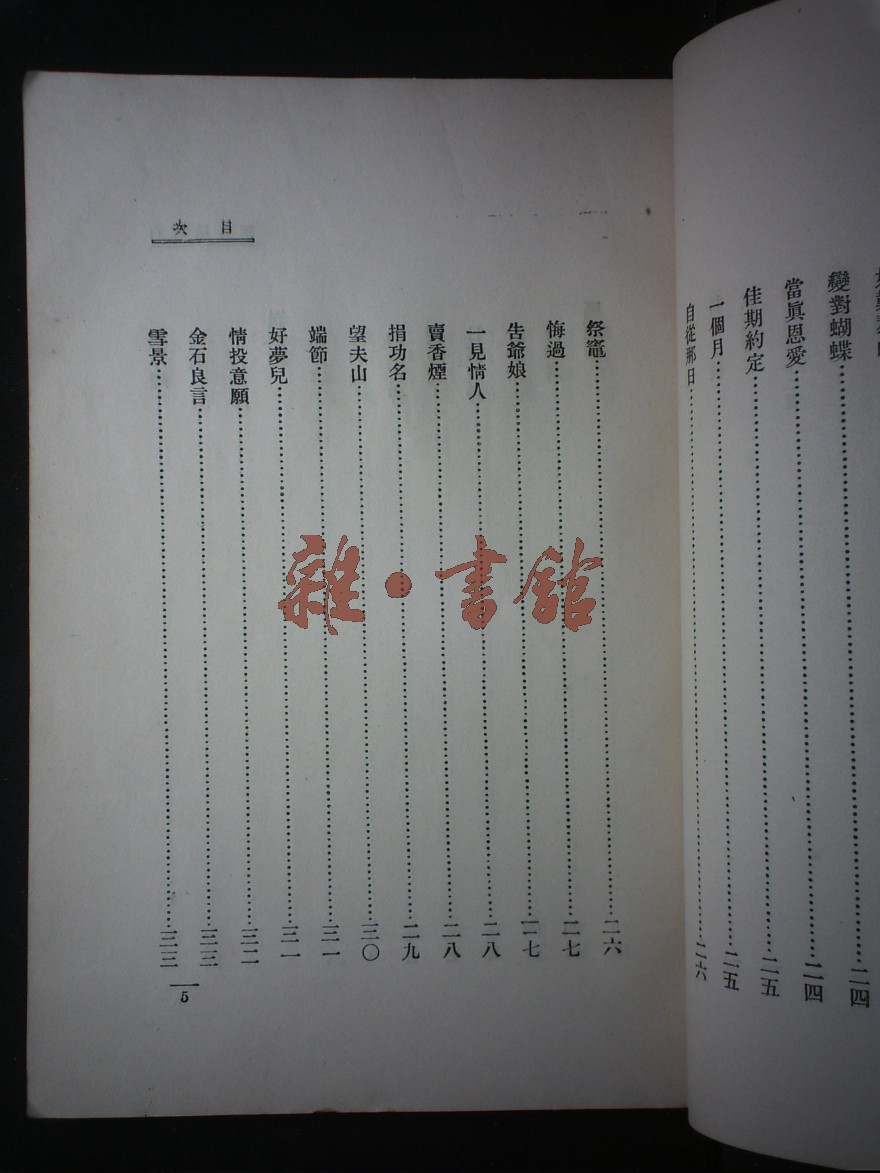 變對蝴蝶……二四
當眞恩愛……二四
佳期約定……二五
一個月……二五
自從那日……二六
目次
祭竈……二六
悔過……二七
告爺娘……二七
一見情人……二八
賣香煙……二八
捐功名……二九
望夫山……三〇
端節……三一
好夢兒……三一
情投意願……三二
金石良言……三三
雪景……三三
5
雜·書館